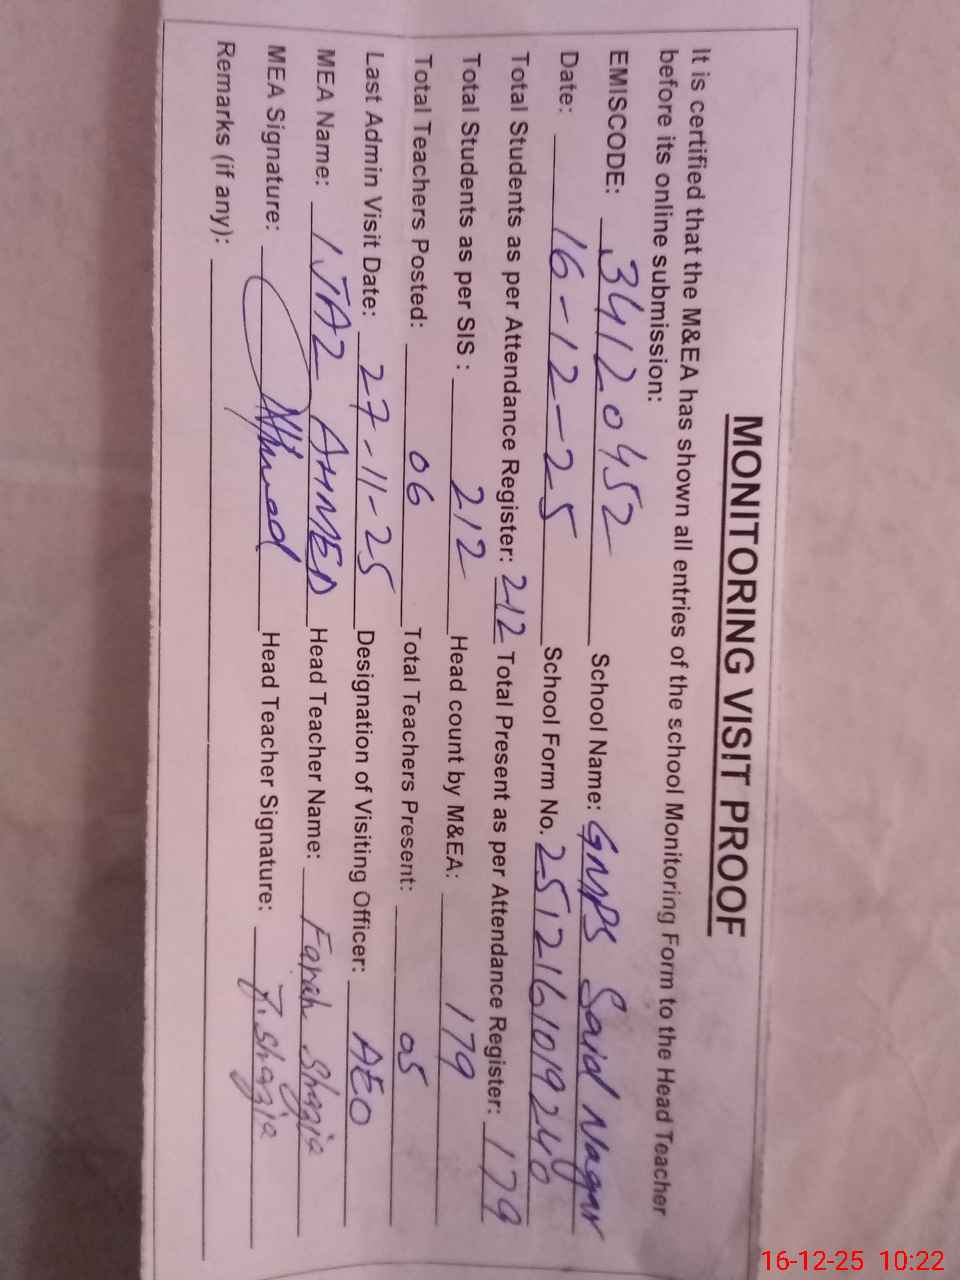 MONITORING VISIT PROOF
It is certified that the M&EA has shown all entries of the school Monitoring Form to the Head Teacher
before its online submission:
EMISCODE: 34120452 School Name: GMPS Said Nagar
Date: 16-12-25 School Form No. 2512161019240
Total Students as per Attendance Register: 212 Total Present as per Attendance Register: 179
Total Students as per SIS : 212 Head count by M&EA: 179
Total Teachers Posted: 06 Total Teachers Present: 05
Last Admin Visit Date: 27-11-25 Designation of Visiting Officer: AEO
MEA Name: IJAZ AHMED Head Teacher Name: Farah Shazia
MEA Signature: Ahmed Head Teacher Signature: F. Shazia
Remarks (if any):
16-12-25 10:22